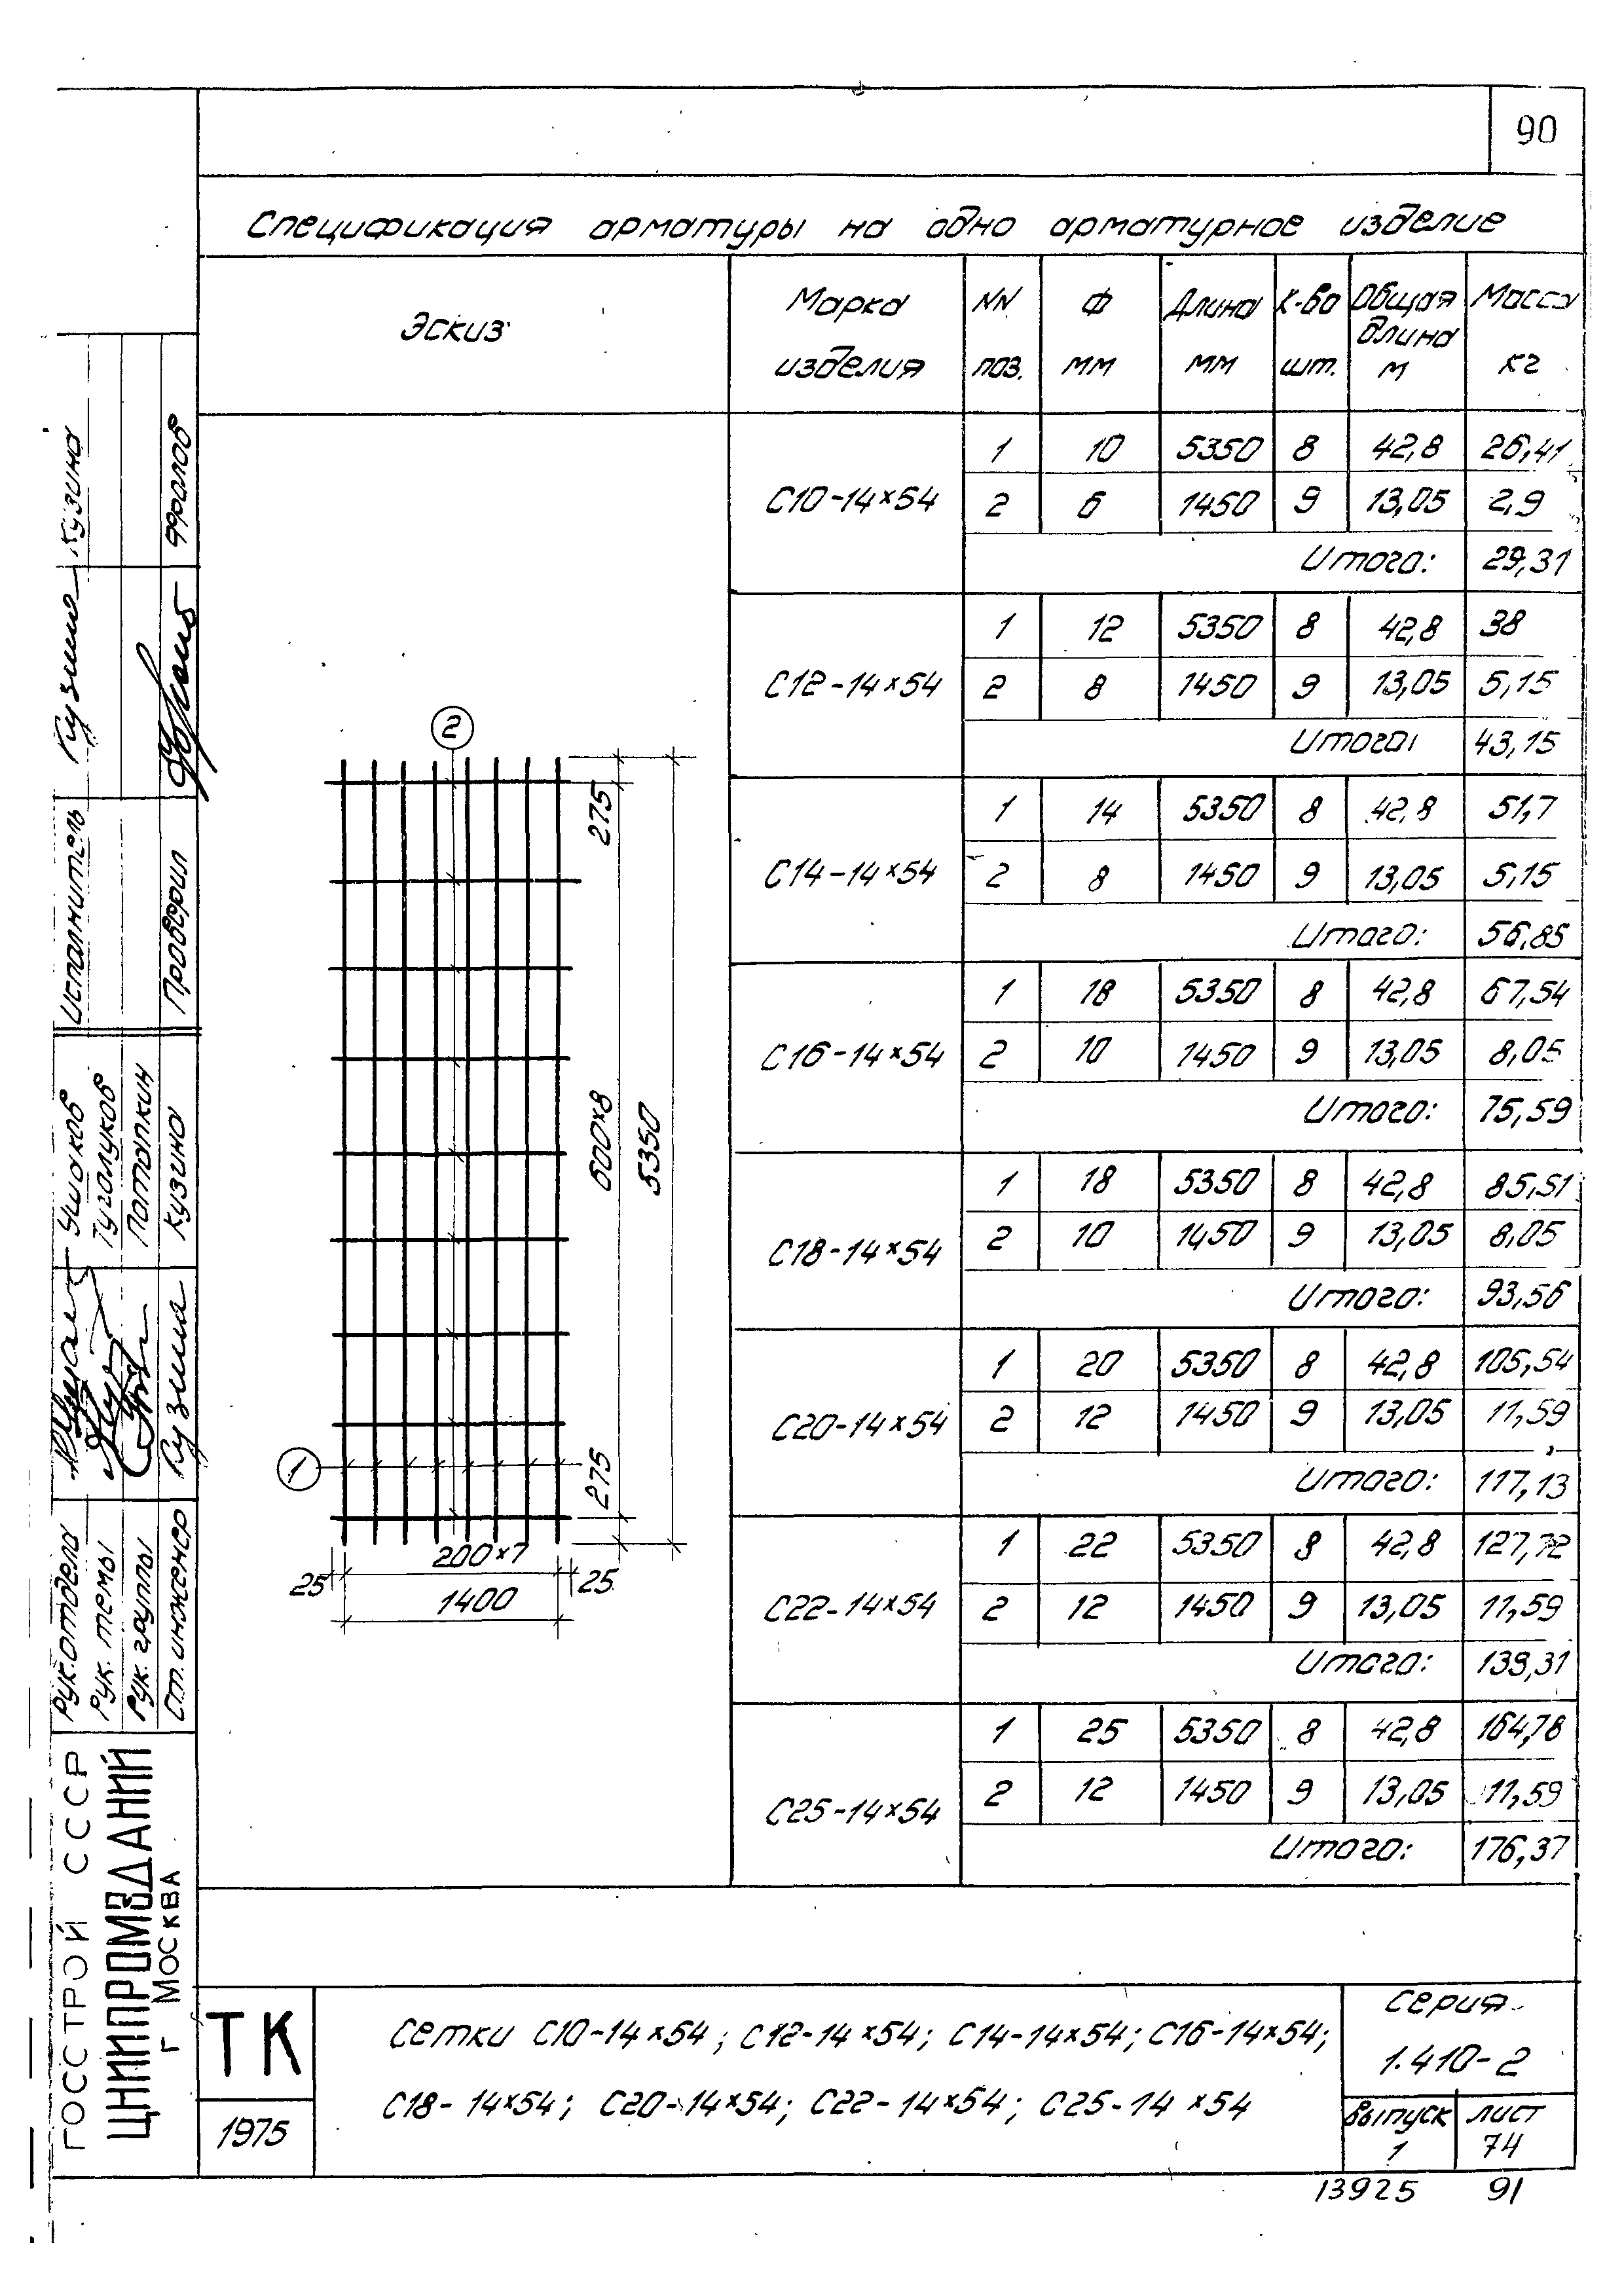 90
Спецификация арматуры на одно арматурное изделие
Эскиз
Марка изделия
NN поз.
Ф мм
Длина мм
К-во шт.
Общая длина м
Масса кг
С10-14×54
1 10 5350 8 42,8 26,41
2 6 1450 9 13,05 2,9
Итого: 29,31
С12-14×54
1 12 5350 8 42,8 38
2 8 1450 9 13,05 5,15
Итого: 43,15
С14-14×54
1 14 5350 8 42,8 51,7
2 8 1450 9 13,05 5,15
Итого: 56,85
С16-14×54
1 18 5350 8 42,8 67,54
2 10 1450 9 13,05 8,05
Итого: 75,59
С18-14×54
1 18 5350 8 42,8 85,51
2 10 1450 9 13,05 8,05
Итого: 93,56
С20-14×54
1 20 5350 8 42,8 105,54
2 12 1450 9 13,05 11,59
Итого: 117,13
С22-14×54
1 22 5350 8 42,8 127,72
2 12 1450 9 13,05 11,59
Итого: 139,31
С25-14×54
1 25 5350 8 42,8 164,78
2 12 1450 9 13,05 11,59
Итого: 176,37
2
275
600×8
5350
1
275
200×7
25
25
1400
ТК
1975
Сетки С10-14×54; С12-14×54; С14-14×54; С16-14×54;
С18-14×54; С20-14×54; С22-14×54; С25-14×54
Серия
1.410-2
Выпуск
1
Лист
74
13925 91
ГОССТРОЙ СССР
ЦНИИПРОМЗДАНИЙ
г Москва
Рук. отдела Ушаков
Рук. темы Туголуков
Рук. группы Потапкин
Ст. инженер Кузина
Исполнитель Кузина
Проверил Фролов